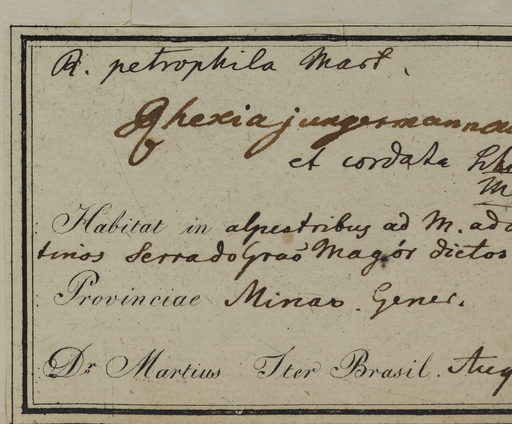 R. petrophila Mart.
Rhexia jungermannoi
et cordata
Habitat in alpestribus ad M. ada
tinos Serrado Graõ Magór dictos
Provinciae Minas. Gener.
Dr Martius Iter Brasil. Aug